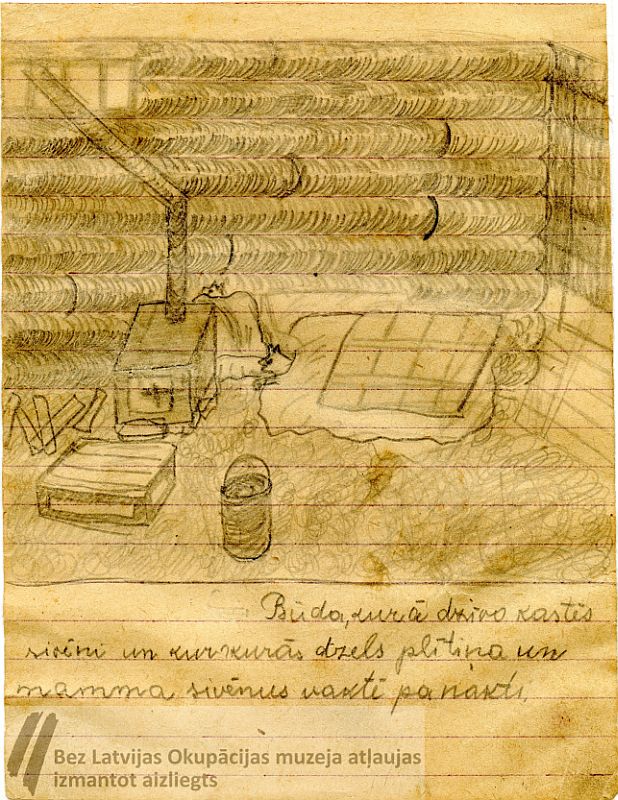 Būda, kurā dzīvo kastēs
sivēni un kur kurās dzels plītiņa un
mamma sivēnus vaktē pa nakti.
Bez Latvijas Okupācijas muzeja atļaujas
izmantot aizliegts